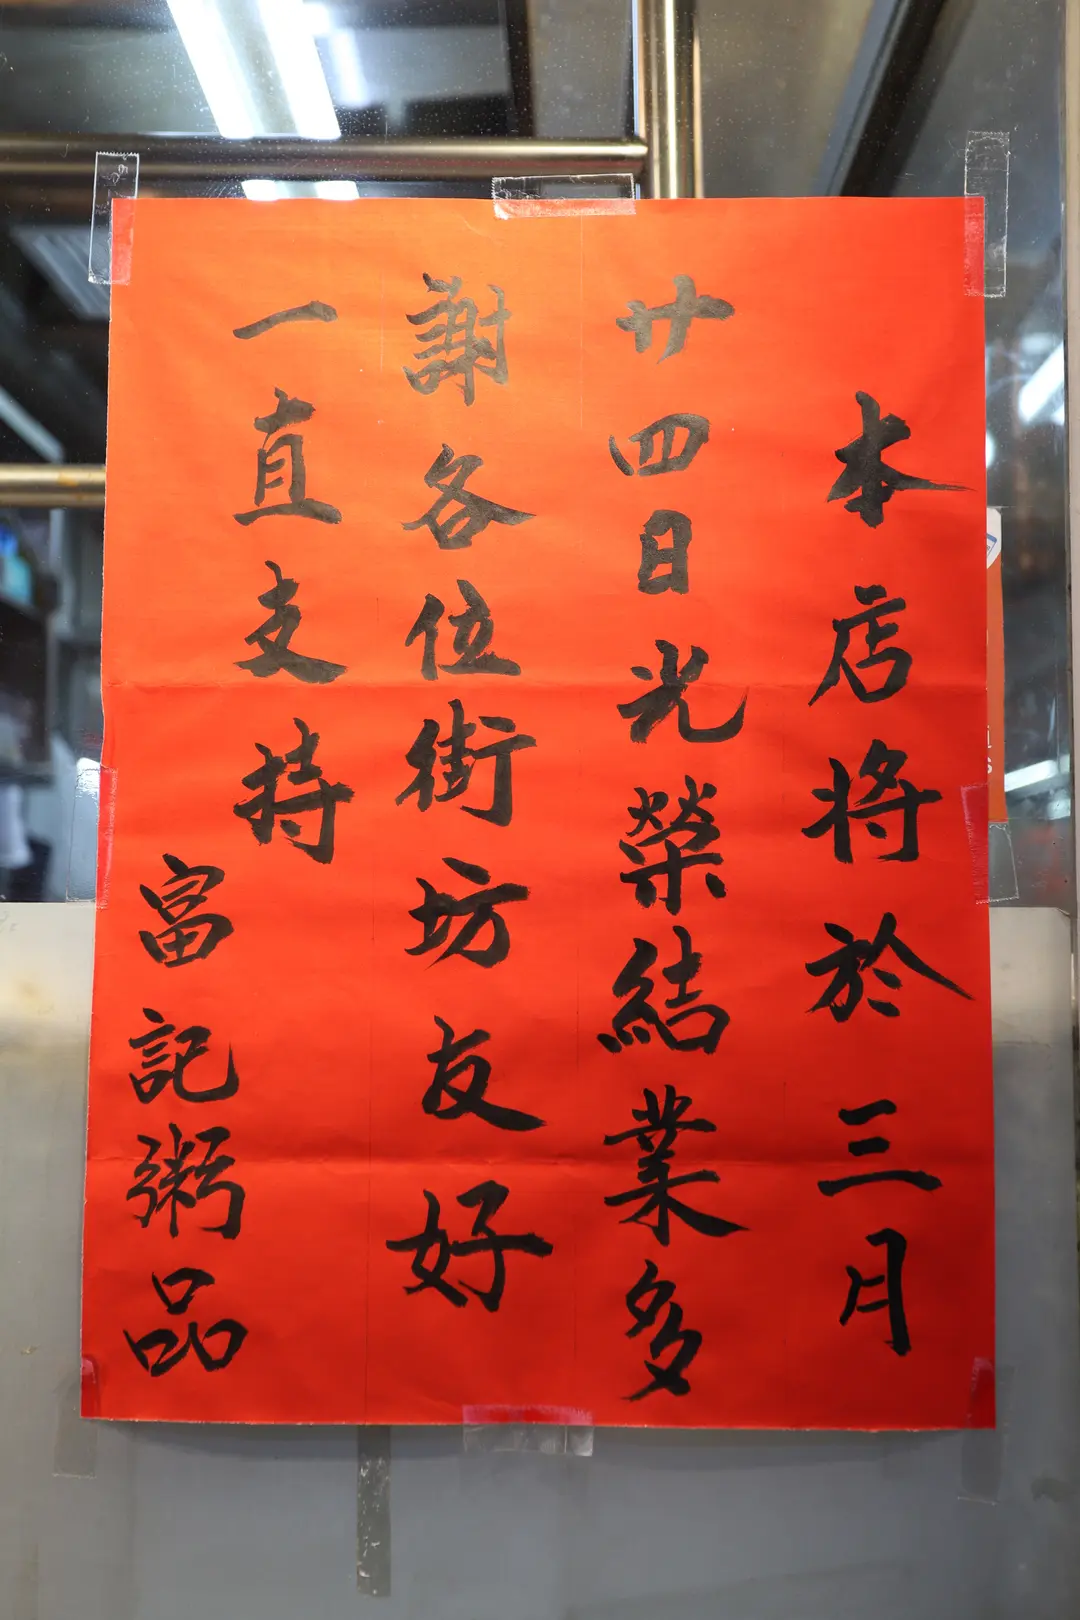 本店将於三月
廿四日光榮結業多
謝各位街坊友好
一直支持
富記粥品